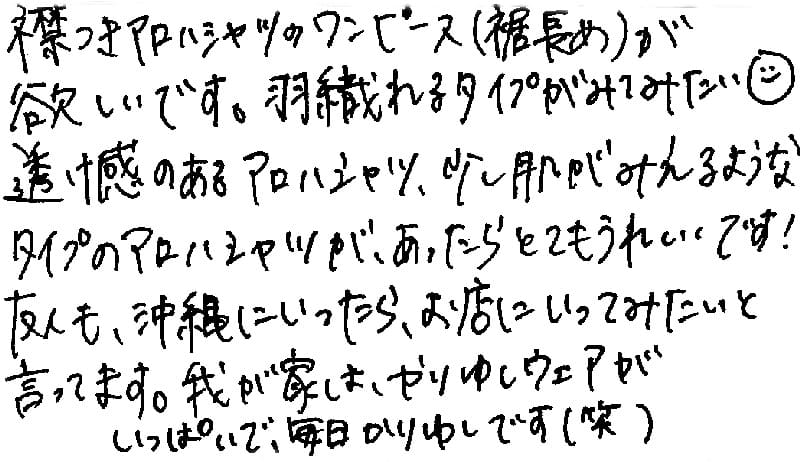 襟つきアロハシャツのワンピース(裾長め)が
欲しいです。羽織れるタイプがみてみたい
透け感のあるアロハシャツ、少し肌がみえるような
タイプのアロハシャツが、あったらとてもうれしいです!
友人も、沖縄にいったら、お店にいってみたいと
言ってます。我が家は、かりゆしウェアが
いっぱいで、毎日かりゆしです(笑)